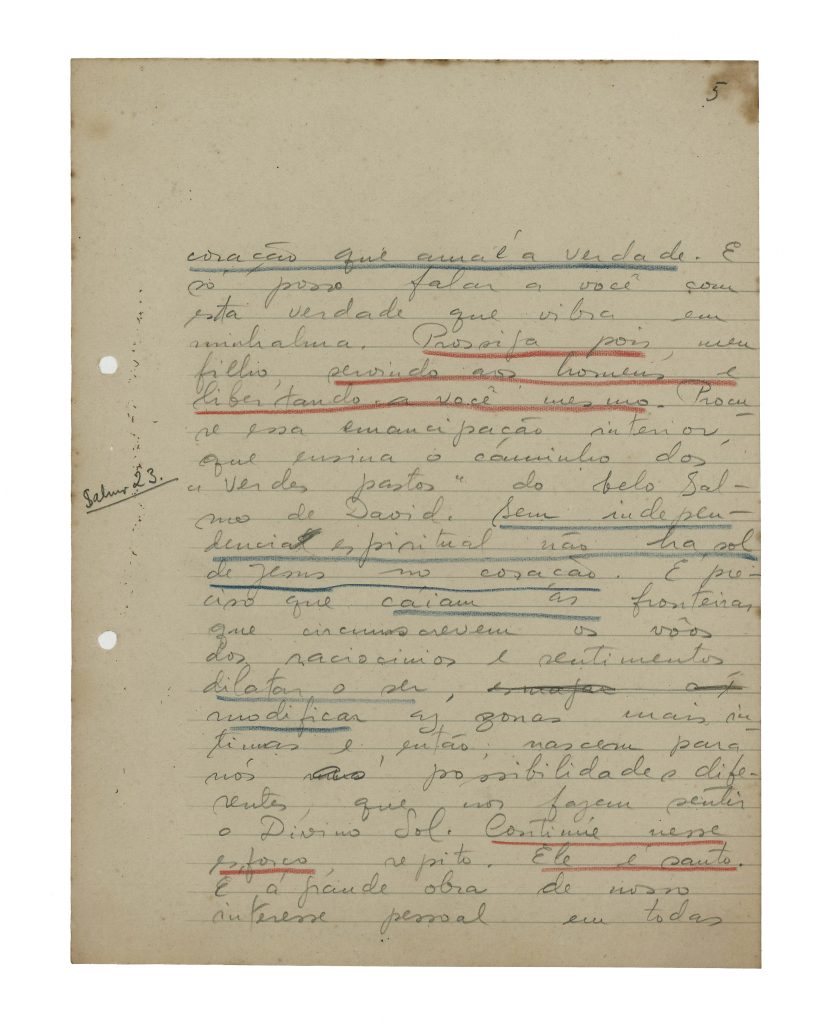 5
coração que ama é a verdade. E
só posso falar a você com
esta verdade que vibra em
minhalma. Prossiga pois, meu
filho, servindo aos homens e
libertando a você mesmo. Procu-
re essa emancipação interior,
que ensina o caminho dos
"verdes pastos" do belo Sal-
Salmo 23.
mo de David. Sem indepen-
dencia espiritual não ha sol
de Jesus no coração. É pre-
ciso que caiam as fronteiras
que circunscrevem os vôos
dos raciocinios e sentimentos
dilatar o ser,
modificar as zonas mais in-
timas e então, nascem para
nós possibilidades dife-
rentes, que nos fazem sentir
o Divino Sol. Continúe nesse
esforço, repito. Ele é santo.
E a grande obra de nosso
interesse pessoal em todas